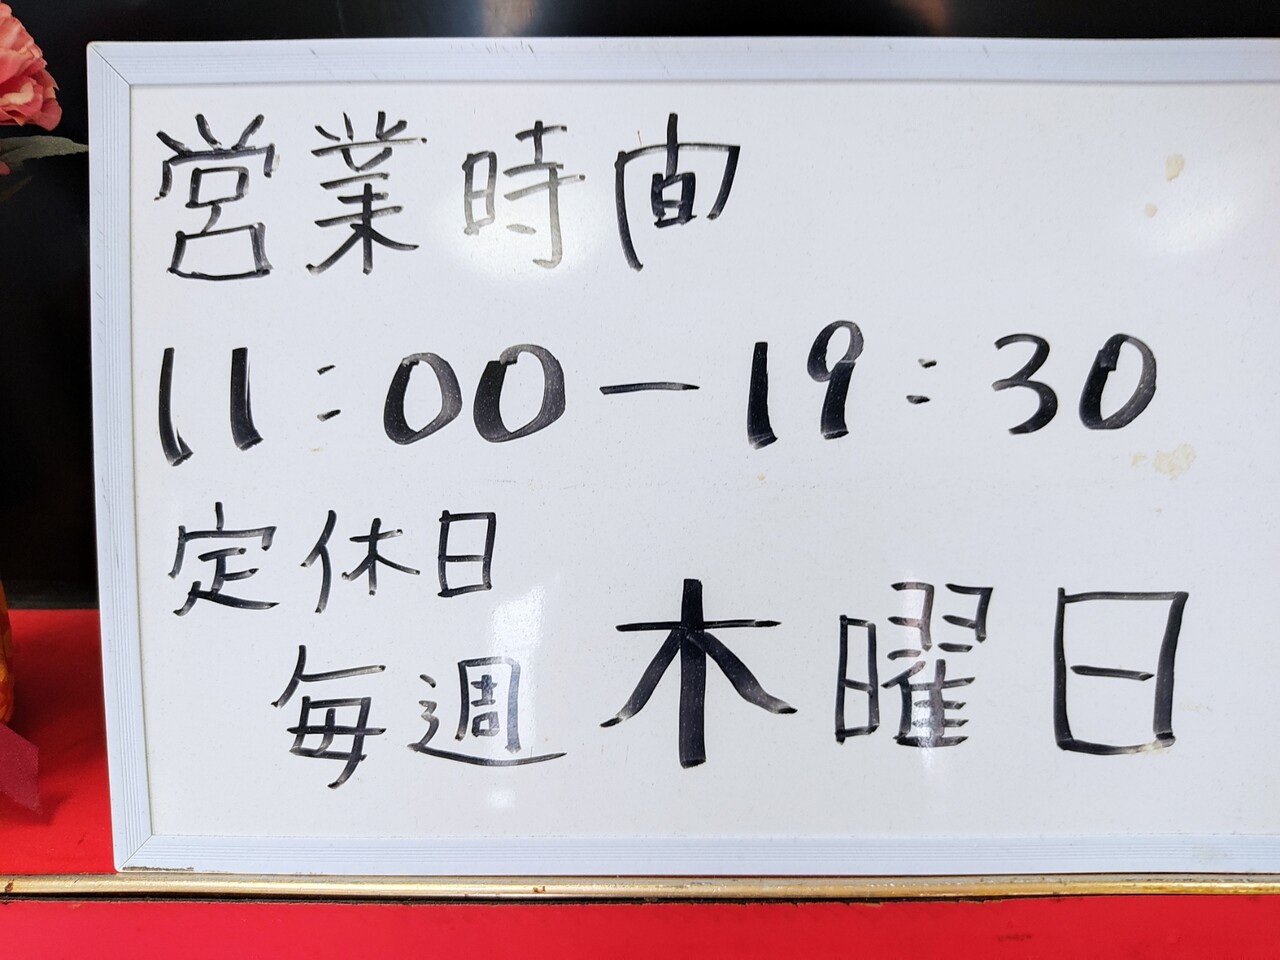 営業時間
11:00－19:30
定休日
毎週 木曜日